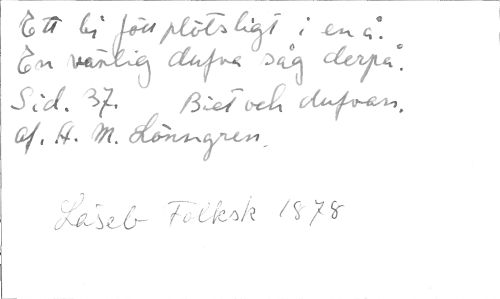 Ett bi föll plötsligt i en å.
En vänlig dufva såg derpå.
Sid. 37. Biet och dufvan.
af. A. M. Lönngren.
Läseb Folksk 1878